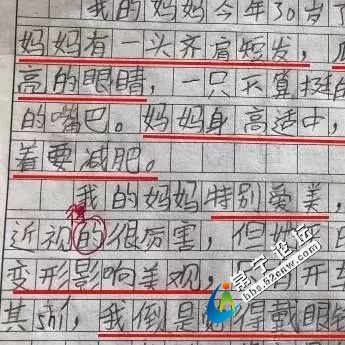 我的妈妈今年30岁了
妈妈有一头齐肩短发，
高的眼睛，一只不算挺的
的嘴巴。妈妈身高适中，
着要减肥。
我的妈妈特别爱美，
得
近视的很厉害，但她
变形影响美观，只有开车
其他时，我倒是觉得戴眼镜
常宁论坛
bbs.52ywb.cn